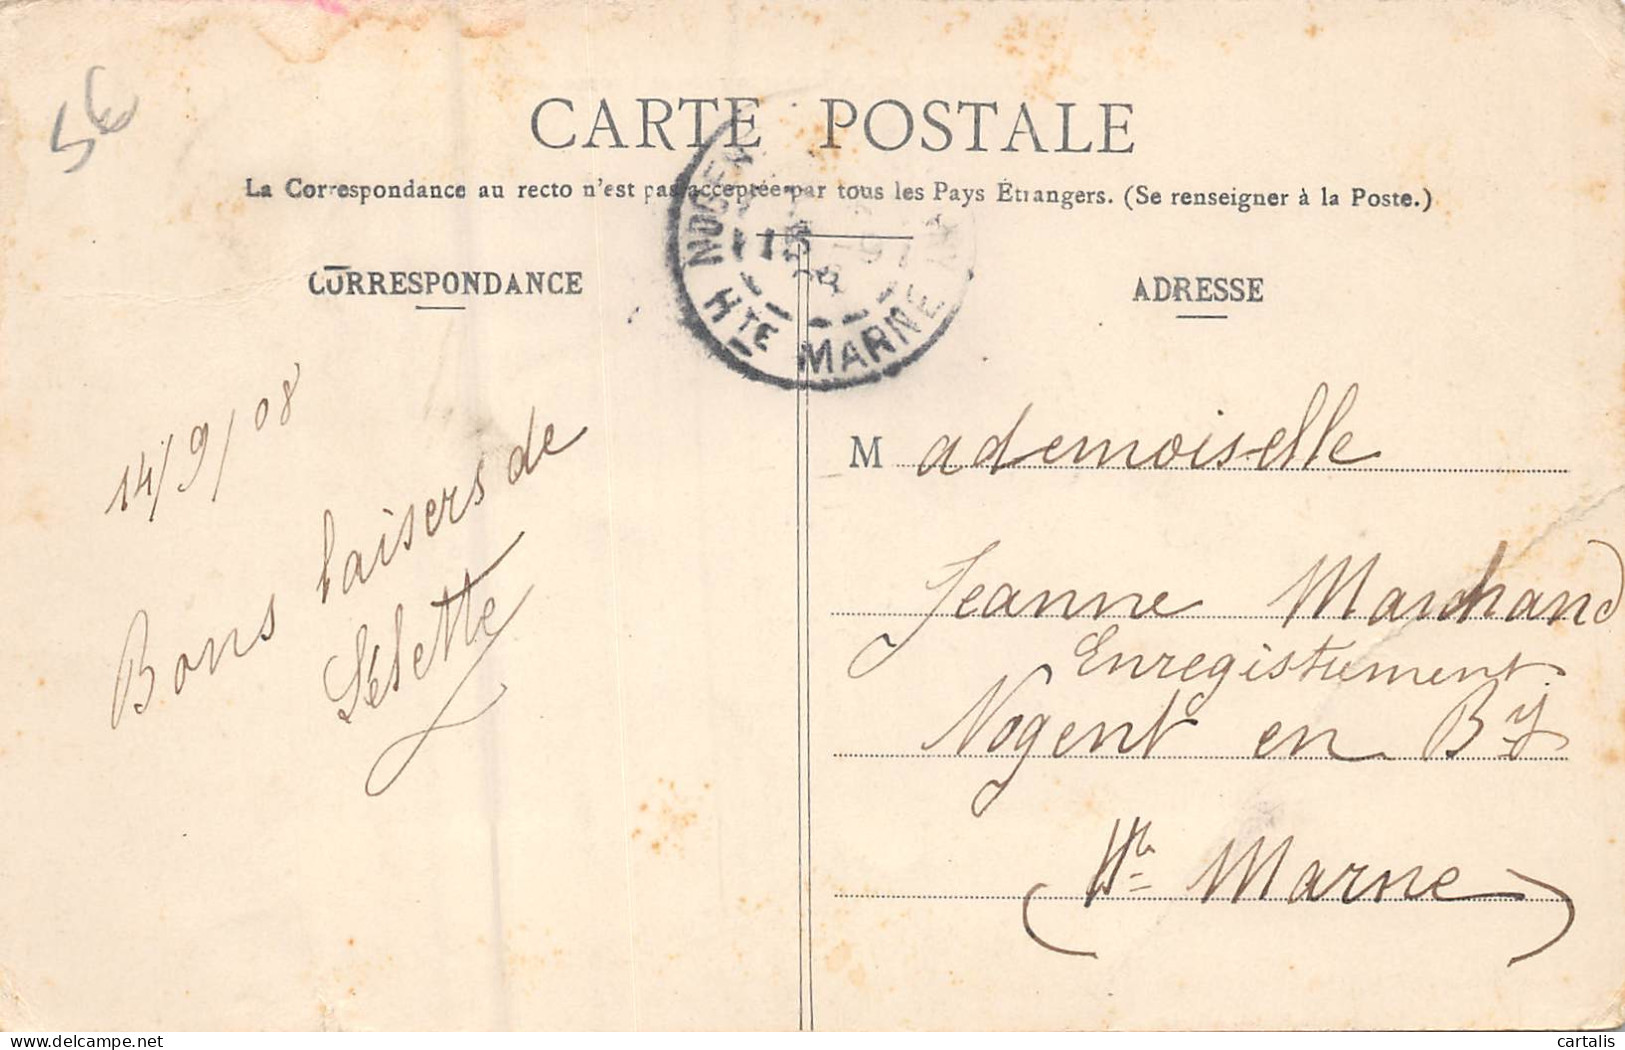 5€
CARTE POSTALE
La Correspondance au recto n'est pas acceptée par tous les Pays Étrangers. (Se renseigner à la Poste.)
NOGEN
15
08
Hte MARNE
CORRESPONDANCE
14/9/08
Bons baisers de
ADRESSE
Mademoiselle
Jeanne Marchand
Enregistrement
Nogent en By
(Hte Marne)
delcampe.net
cartalis